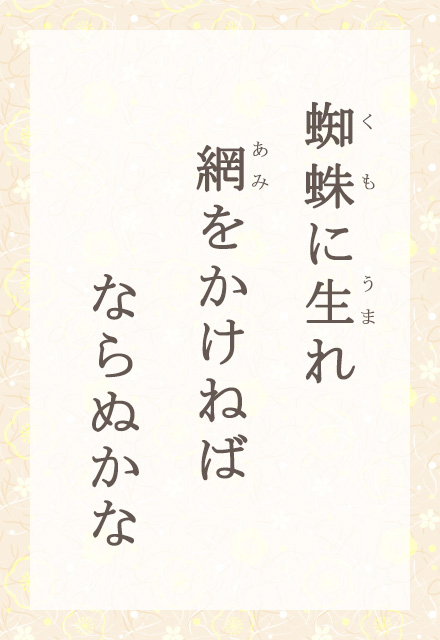 蜘蛛に生れ
くも うま
網をかけねば
あみ
ならぬかな